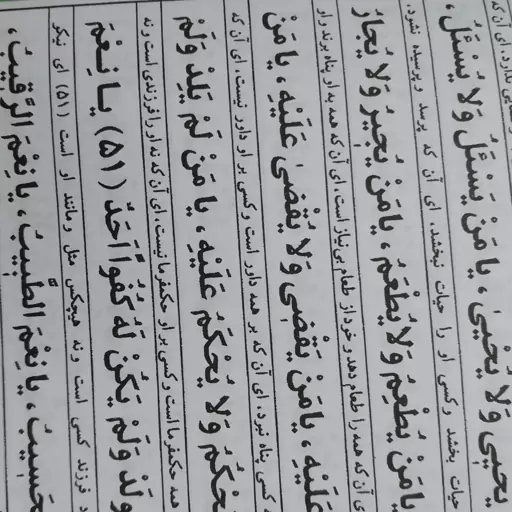 يُحْيِي وَلَا يُحْيىٰ، يَا مَنْ يَسْئَلُ وَلَا يُسْئَلُ،
حیات بخشد و کسی او را حیات نبخشد، ای آن که پرسد و پرسیده نشود،
يَا مَنْ يُطْعِمُ وَلَا يُطْعَمُ، يَا مَنْ يُجِيرُ وَلَا يُجَارُ
آن که همه را طعام دهد و خود از طعام بی‌نیاز است، ای آن که همه به او پناه برند و او
عَلَيْهِ، يَا مَنْ يَقْضِي وَلَا يُقْضىٰ عَلَيْهِ، يَا مَنْ
کسی پناه نبرد، ای آن که بر همه داور است و کسی بر او داور نیست، ای آن که
يَحْكُمُ وَلَا يُحْكَمُ عَلَيْهِ، يَا مَنْ لَمْ يَلِدْ وَلَمْ
همه حکمفرما است و کسی بر او حکمفرما نیست، ای آن که نه او را فرزندی است و نه
ولَدْ وَلَمْ يَكُنْ لَهُ كُفُواً اَحَدٌ (۵۱) يَا نِعْمَ
فرزند کسی است و نه هیچکس مثل و مانند او است (۵۱) ای نیکو
حَسِيبُ، يَا نِعْمَ الطَّبِيبُ، يَا نِعْمَ الرَّقِيبُ،